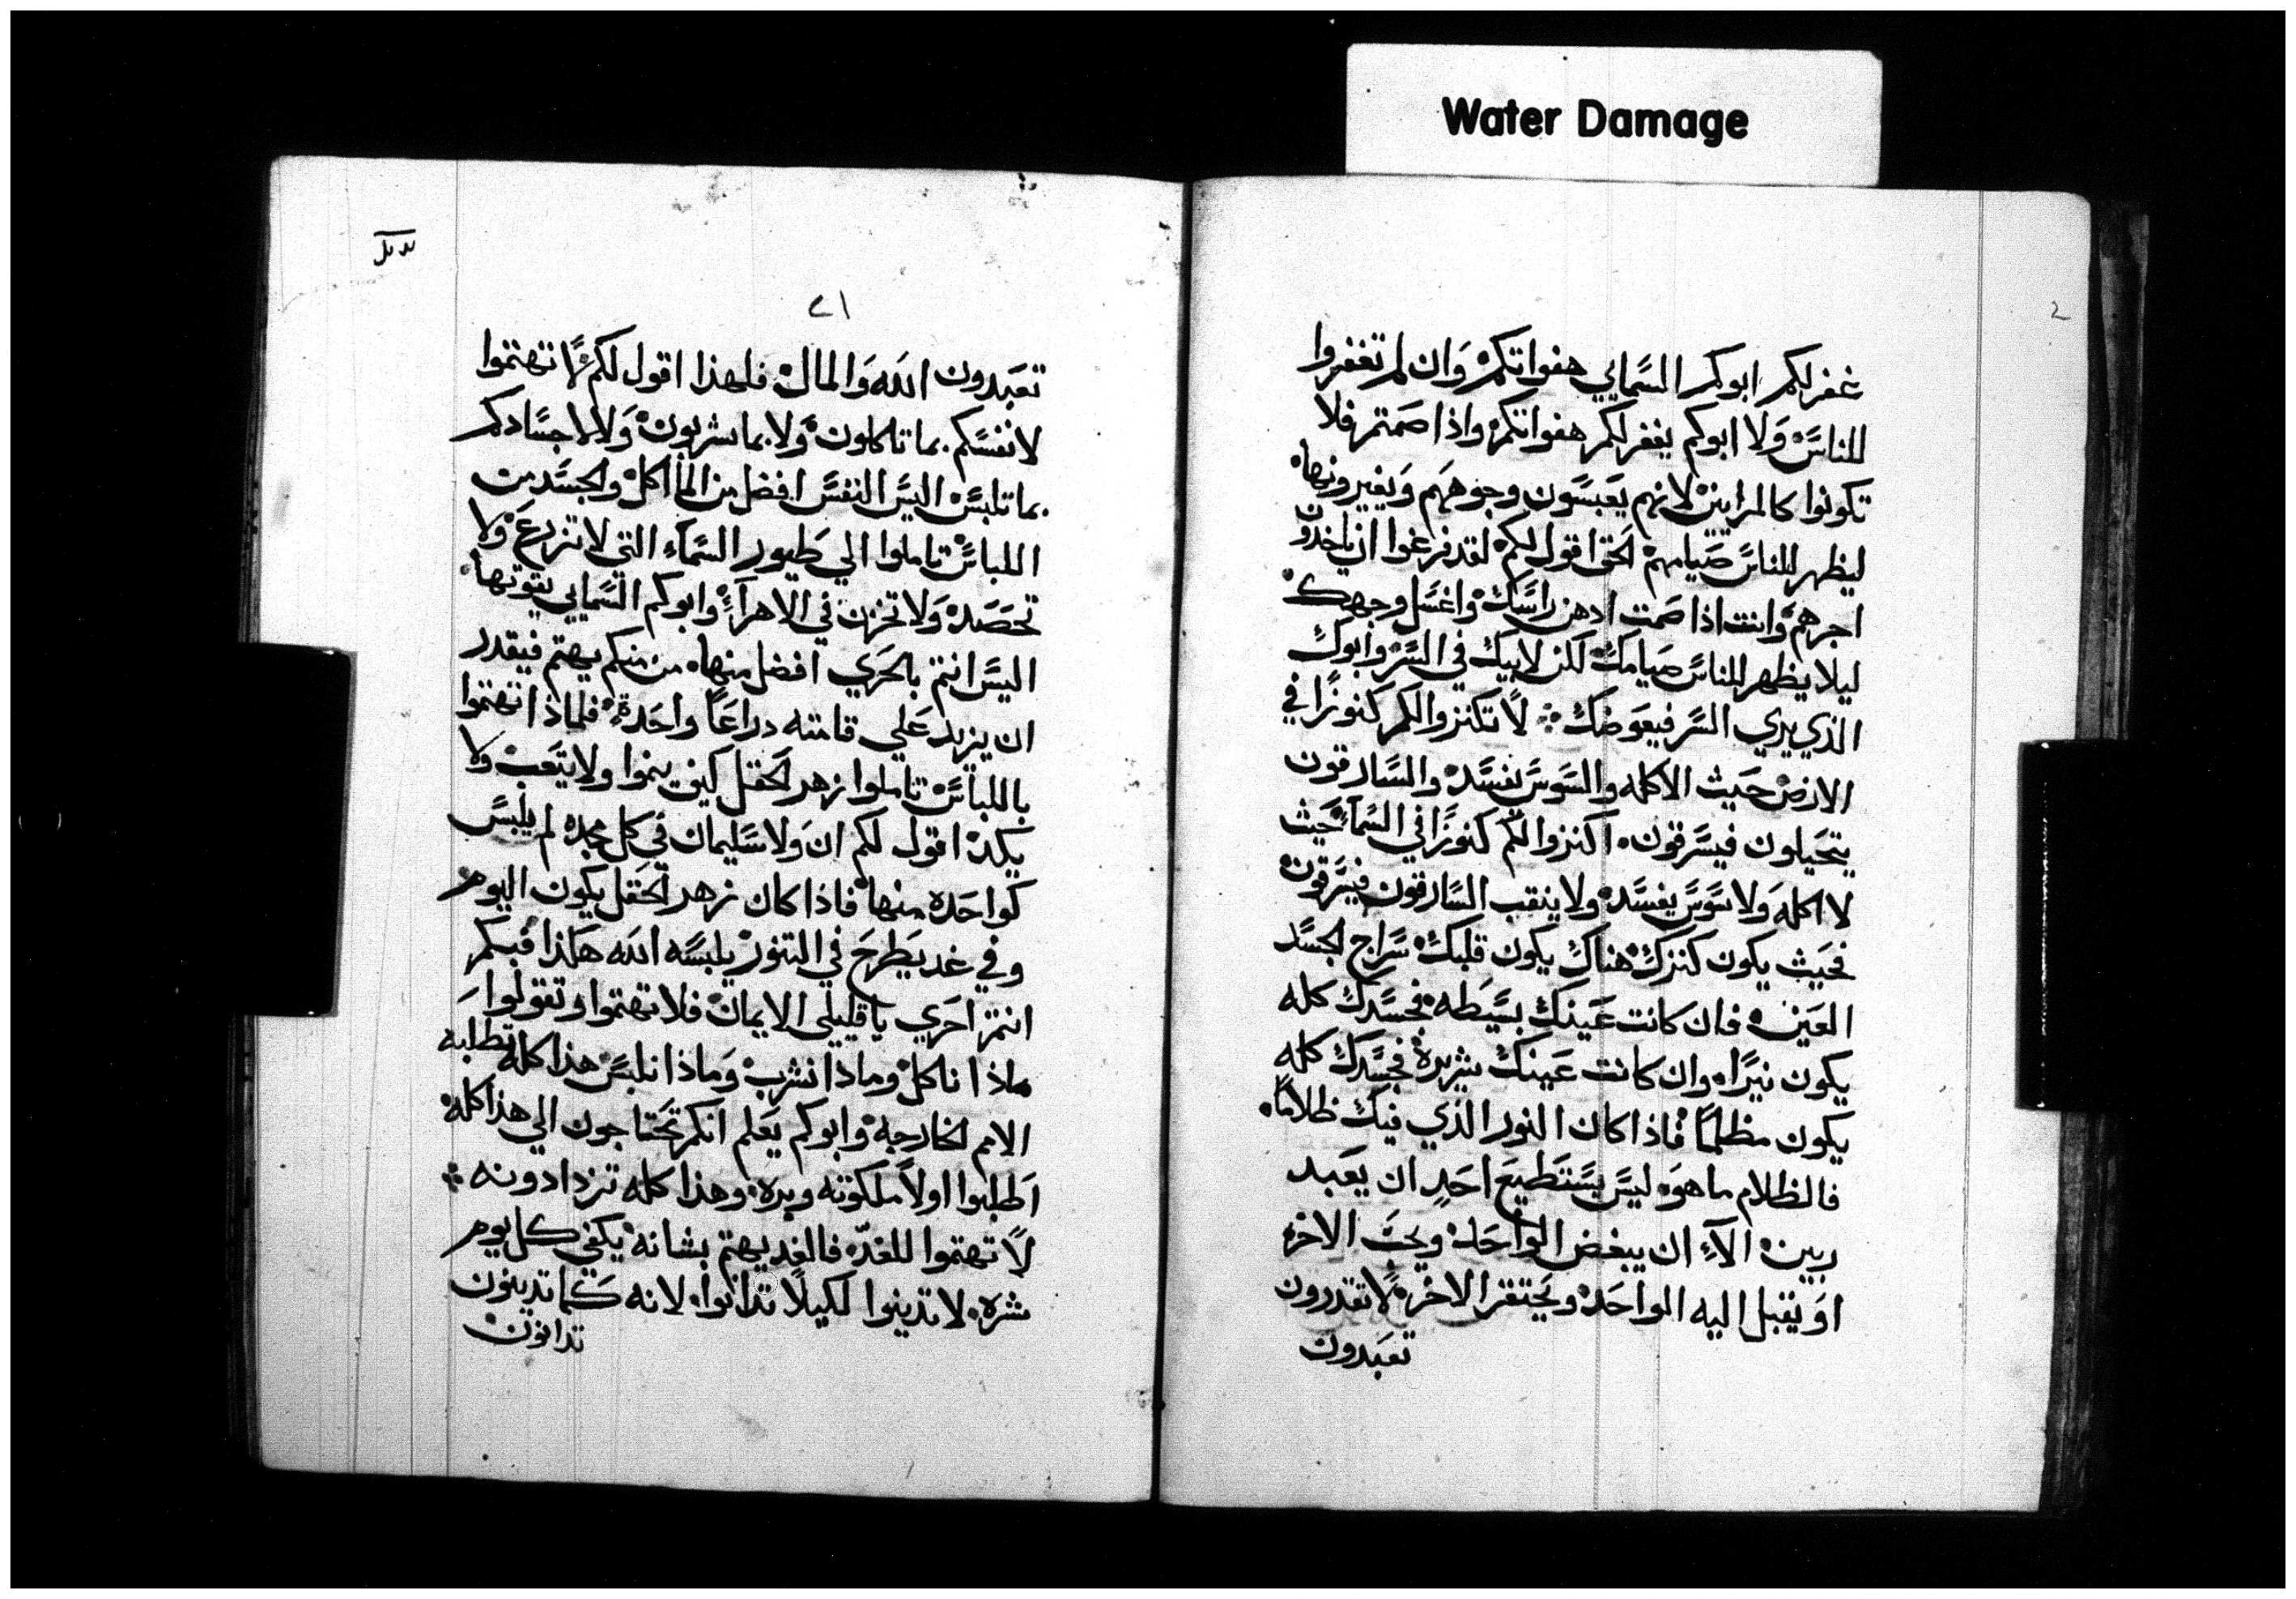 Water Damage
غفر لكم ابوكم السمايي هفواتكم وان لم تغفروا
للناس ولا ابوكم يغفر لكم هفواتكم واذا صمتم فلا
تكونوا كالمرايين لانهم يعبسون وجوههم ويغيرونها
ليظهر للناس صيامهم الحق اقول لكم لقد فرغوا ان ياخدون
اجرهم وانت اذا صمت ادهن راسك واغسل وجهك
ليلا يظهر للناس صيامك لكن لابيك في السر وابوك
الذي يري السر فيعوضك لا تكنزوا لكم كنوزًا في
الارض حيث الاكله والسوس تفسد والسارقون
يتحيلون فيسرقون اكنزوا لكم كنوزًا في السماء حيث
لا اكله ولا سوس يفسد ولا ينقب السارقون فيسرقون
فحيث يكون كنزك هناك يكون قلبك سراج الجسد
العين فان كانت عينك بسيطه فجسدك كله
يكون نيرًا وان كانت عينك شريرة فجسدك كله
يكون مظلمًا فاذا كان النور الذي فيك ظلامًا
فالظلام ما هو ليس يستطيع احد ان يعبد
ربين الاّ ان يبغض الواحد ويحب الاخر
او يقبل اليه الواحد ويحتقر الاخر لا تقدرون
تعبدون
٢١
تعبدون الله والمال فلهذا اقول لكم لا تهتموا
لانفسكم بما تاكلون ولا بما تشربون ولا لاجسادكم
بما تلبس اليس النفس افضل من الماكل والجسد من
اللباس تاملوا الي طيور السماء التي لا تزرع ولا
تحصد ولا تخزن في الاهراء وابوكم السمايي يقوتها
اليس انتم بالحري افضل منها من منكم يهتم فيقدر
ان يزيد علي قامته دراعًا واحدة فلماذا تهتموا
باللباس تاملوا زهر الحقل كيف ينموا ولا يتعب ولا
يكد اقول لكم ان ولا سليمان في كل مجده لم يلبس
كواحده منها فاذا كان زهر الحقل يكون اليوم
وفي غد يطرح في التنور يلبسه الله هكذا فبكم
انتم احري يا قليلي الايمان فلا تهتموا وتقولوا
ماذا ناكل وماذا نشرب وماذا نلبس هذا كله تطلبه
الامم الخارجة وابوكم يعلم انكم تحتاجون الي هذا كله
اطلبوا اولاً ملكوته وبره وهذا كله تزدادونه
لا تهتموا للغد فالغد يهتم بشانه يكفي كل يوم
شره لا تدينوا لكيلا تدانوا لانه كما تدينون
تدانون